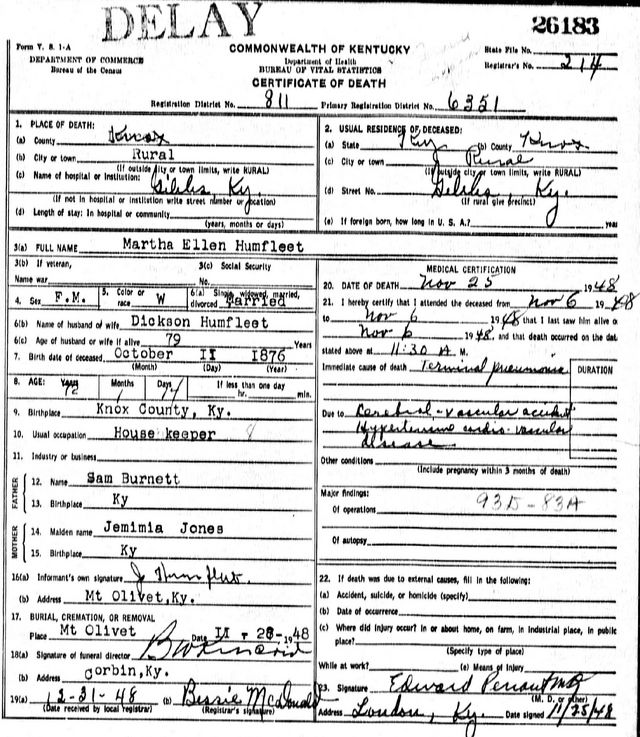 DELAY
26183
Form V. S. 1-A
COMMONWEALTH OF KENTUCKY
State File No.
DEPARTMENT OF COMMERCE
Department of Health
Bureau of the Census
BUREAU OF VITAL STATISTICS
Registrar's No. 214
CERTIFICATE OF DEATH
Registration District No. 811 Primary Registration District No. 6351
1. PLACE OF DEATH:
(a) County Knox
(b) City or town Rural
(If outside city or town limits, write RURAL)
(c) Name of hospital or institution: Ky.
(If not in hospital or institution write street number or location)
(d) Length of stay: In hospital or community
(years, months or days)
2. USUAL RESIDENCE OF DECEASED:
(a) State Ky (b) County Knox
(c) City or town Rural
(If outside city or town limits, write RURAL)
(d) Street No. Ky.
(If rural give precinct)
(e) If foreign born, how long in U. S. A.? years
3(a) FULL NAME Martha Ellen Humfleet
3(b) If veteran,
Name war
3(c) Social Security
No.
4. Sex F.M. 5. Color or race W 6(a) Single, widowed, married, divorced Married
6(b) Name of husband or wife Dickson Humfleet
6(c) Age of husband or wife if alive 79 Years
7. Birth date of deceased October 11 1876
(Month) (Day) (Year)
8. AGE: Years 72 Months 1 Days 14 If less than one day
hr. min.
9. Birthplace Knox County, Ky.
10. Usual occupation House keeper
11. Industry or business
FATHER
12. Name Sam Burnett
13. Birthplace Ky
MOTHER
14. Maiden name Jemimia Jones
15. Birthplace Ky
16(a) Informant's own signature J Humfleet
(b) Address Mt Olivet,Ky.
17. BURIAL, CREMATION, OR REMOVAL
Place Mt Olivet Date 11 - 28-, 1948
18(a) Signature of funeral director
(b) Address Corbin,Ky.
19(a) 12-31-48 (b) Bessie McDonald
(Date received by local registrar) (Registrar's signature)
MEDICAL CERTIFICATION
20. DATE OF DEATH Nov 25 1948
21. I hereby certify that I attended the deceased from Nov 6 1948
to Nov 6 1948 that I last saw him alive on
Nov 6 1948, and that death occurred on the date
stated above at 11:30 A M.
Immediate cause of death Terminal pneumonia
DURATION
Due to Cerebral-vascular accident
Hypertensive cardio-vascular
disease
Other conditions
(Include pregnancy within 3 months of death)
Major findings: 93D-83A
Of operations
Of autopsy
22. If death was due to external causes, fill in the following:
(a) Accident, suicide, or homicide (specify)
(b) Date of occurrence
(c) Where did injury occur? In or about home, on farm, in industrial place, in public
place?
(Specify type of place)
While at work? (e) Means of Injury
23. Signature Edward MD
(M. D. or other)
Address London, Ky. Date signed 11/25/48